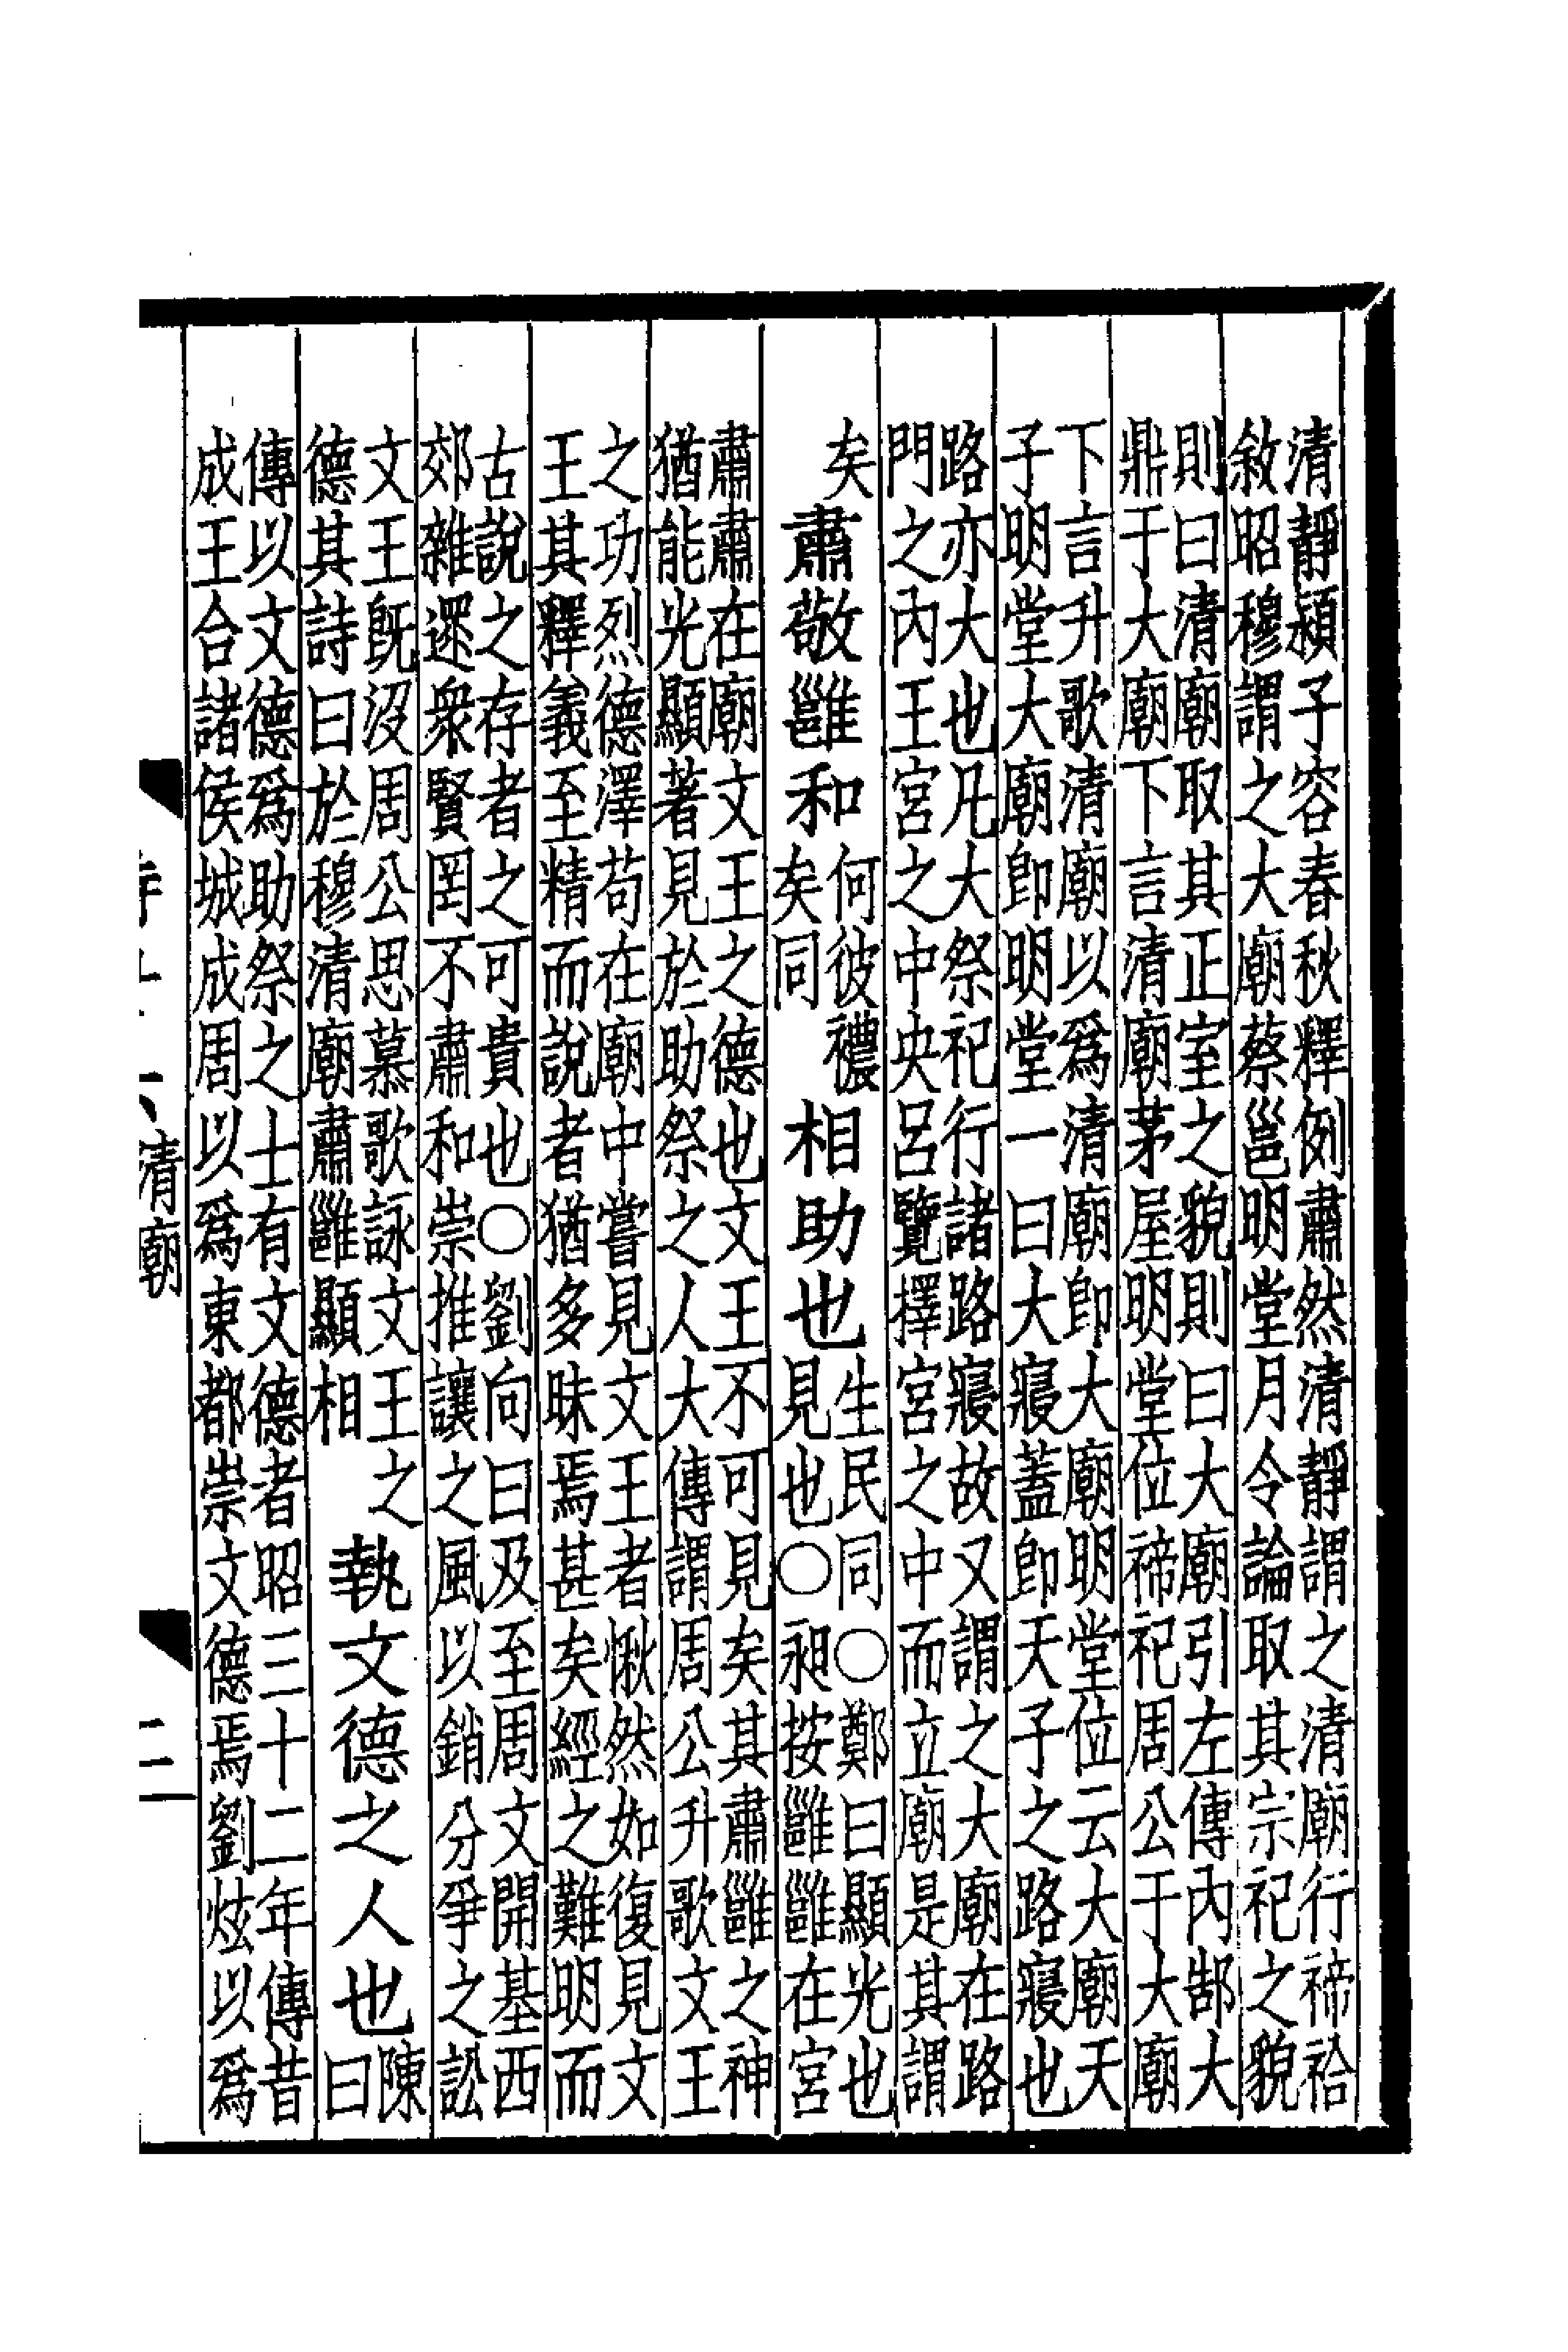 清靜潁子容春秋釋例肅然清靜謂之清廟行禘祫
敘昭穆謂之大廟蔡邕明堂月令論取其宗祀之貌
則曰清廟取其正室之貌則曰大廟引左傳內郜大
鼎于大廟下言清廟茅屋明堂位禘祀周公于大廟
下言升歌清廟以為清廟即大廟明堂位云大廟天
子明堂大廟即明堂一曰大寢蓋即天子之路寢也
路亦大也凡大祭祀行諸路寢故又謂之大廟在路
門之內王宮之中央呂覽擇宮之中而立廟是其謂
矣
肅敬雝和
何彼襛
矣同
相助也
生民同○鄭曰顯光也
見也○昶按雝雝在宮
肅肅在廟文王之德也文王不可見矣其肅雝之神
猶能光顯著見於助祭之人大傳謂周公升歌文王
之功烈德澤苟在廟中嘗見文王者愀然如復見文
王其釋義至精而說者猶多昧焉甚矣經之難明而
古說之存者之可貴也○劉向曰及至周文開基西
郊雜遝衆賢罔不肅和崇推讓之風以銷分爭之訟
文王既沒周公思慕歌詠文王之
德其詩曰於穆清廟肅雝顯相
執文德之人也
陳
曰
傳以文德爲助祭之士有文德者昭三十二年傳昔
成王合諸侯城成周以爲東都崇文德焉劉炫以爲
清廟
二